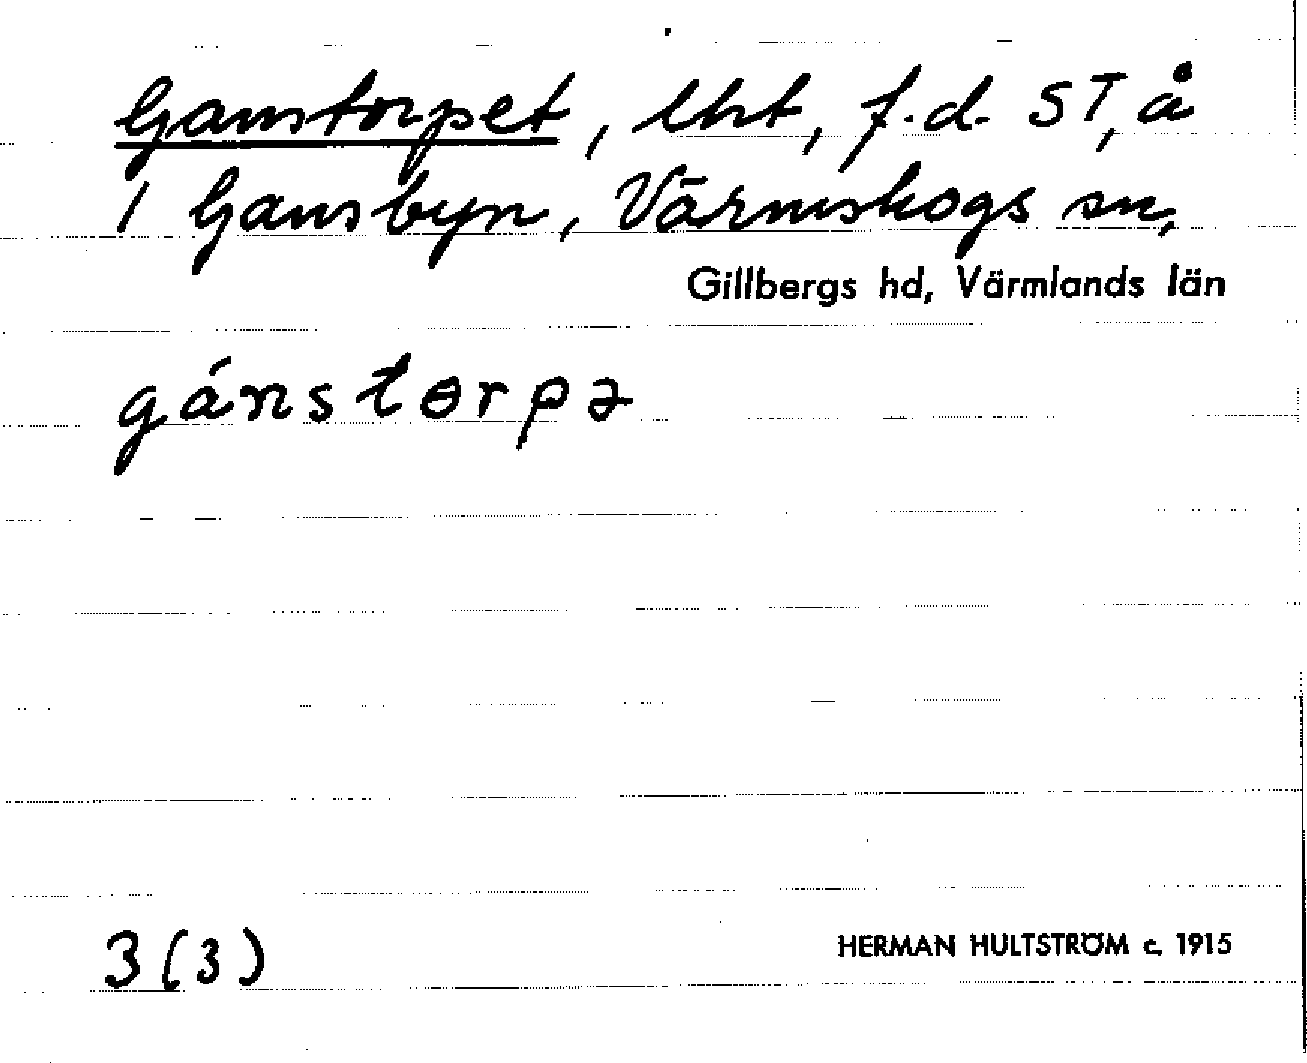 Ganstorpet, lht, f.d. ST, å
1 Gansbyn, Värmskogs sn,
Gillbergs hd, Värmlands län
gánstɵrpə
3(3)
HERMAN HULTSTRÖM c. 1915